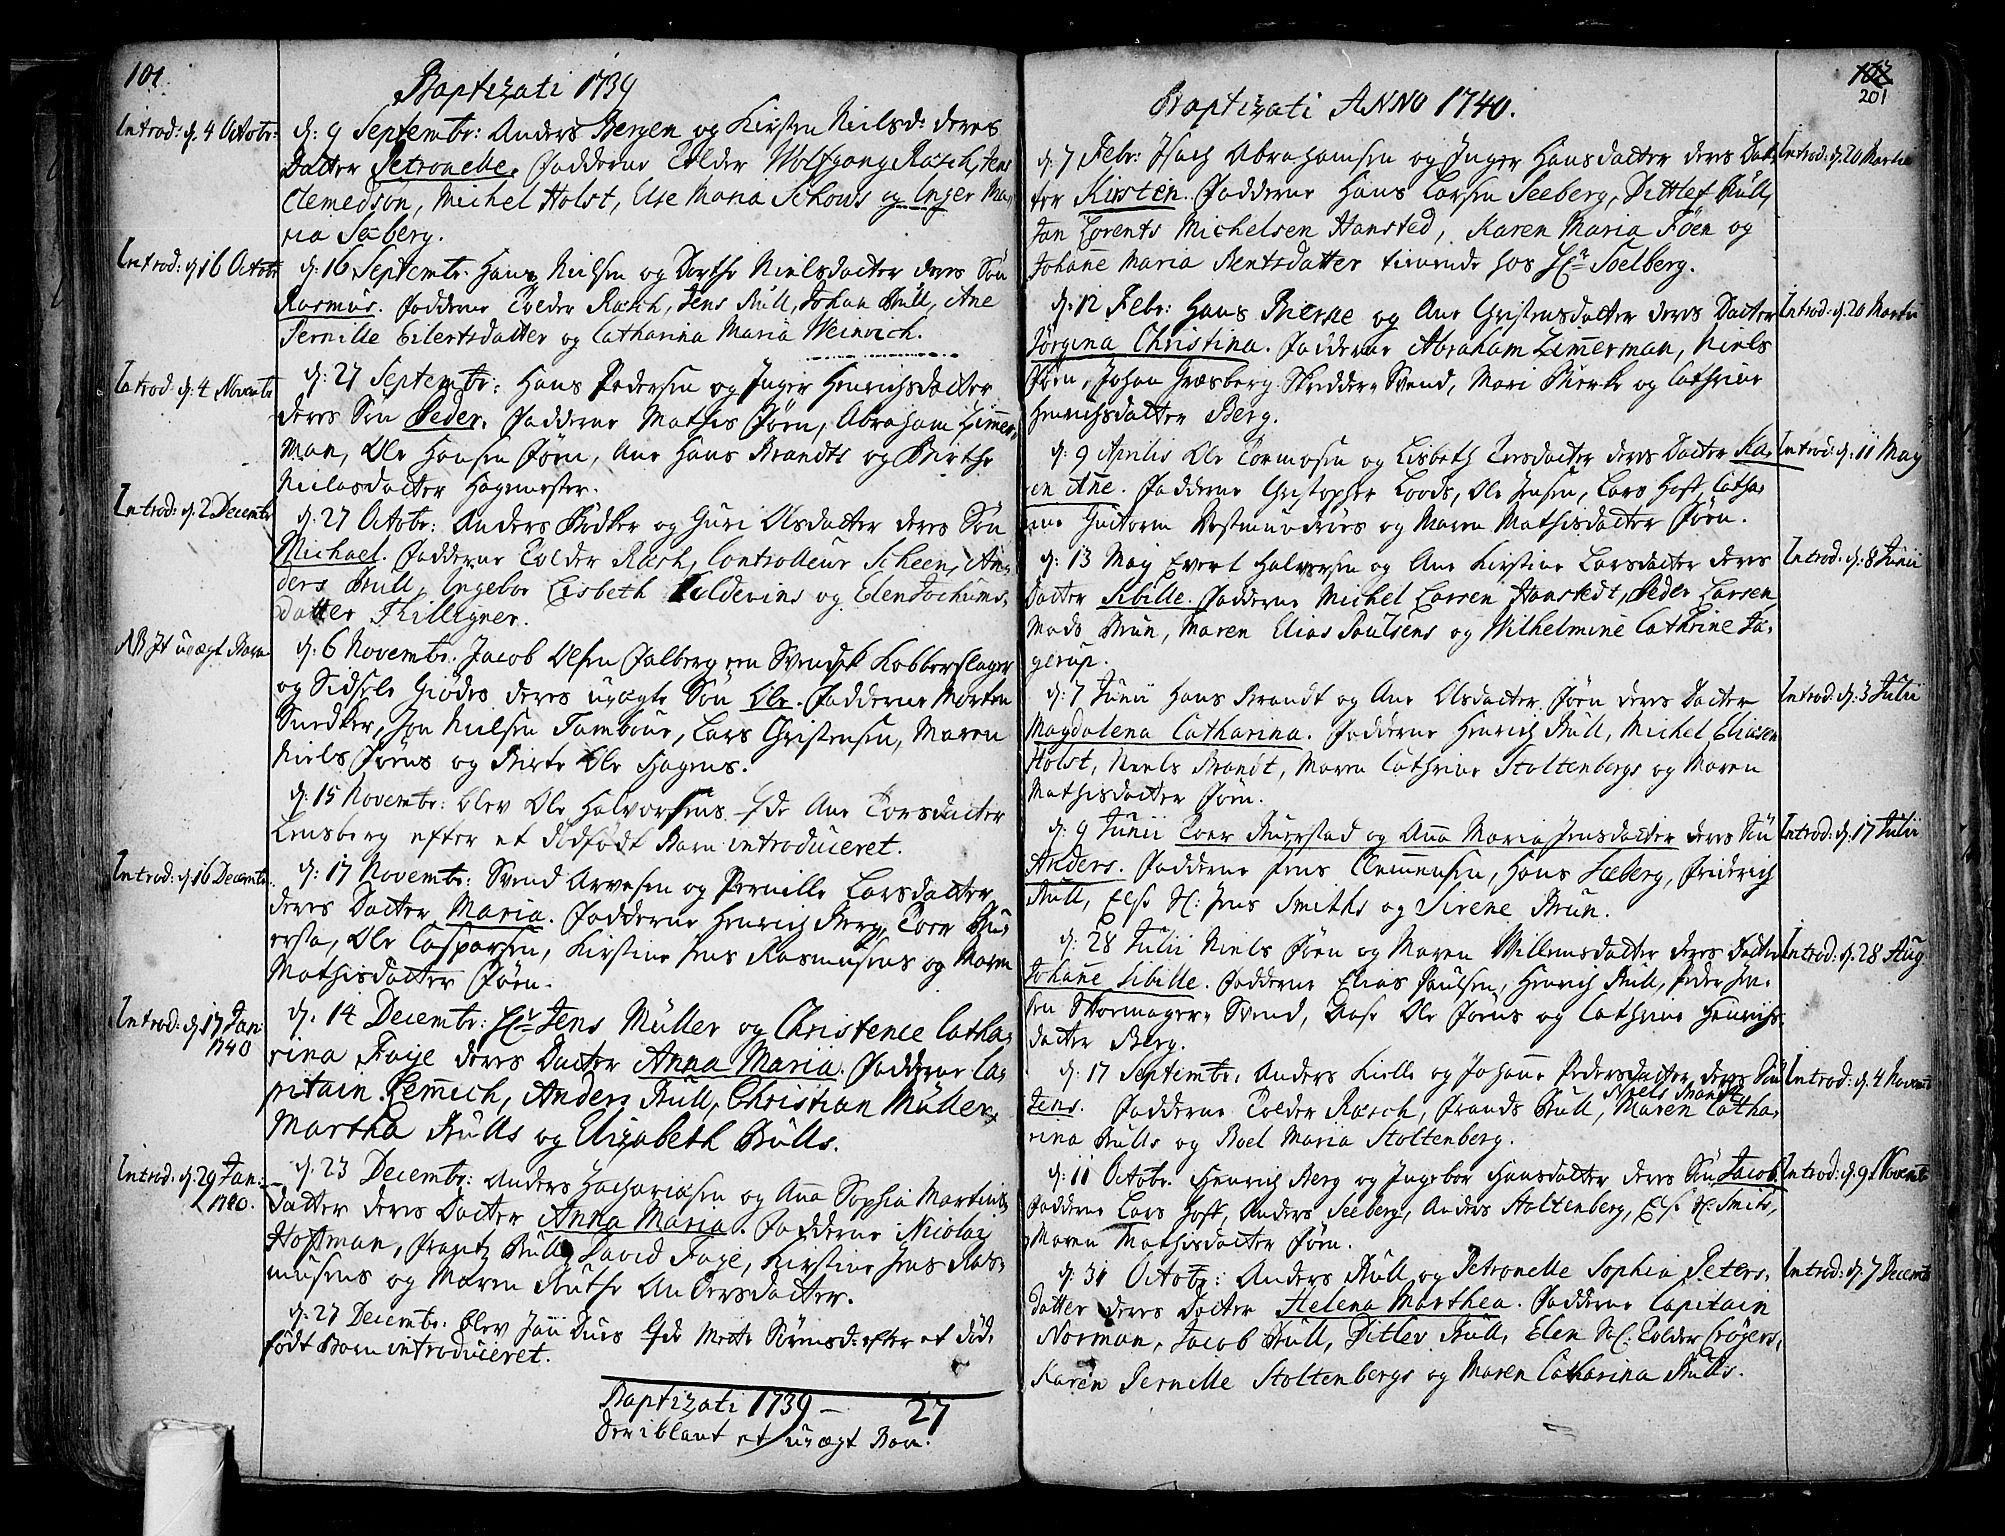 101
Baptizati 1739
Introd: d. 4 Octobr:
d: 9 Septembr: Anders Bergen og Kirsten Nielsd: deres
Datter Petronelle. Fadderne Tolder Wolfgang Rasch, Jens
Clemedsøn, Michel Holst, Else Maria Schows og Inger Ma,
ria Sæberg.
Introd: d. 16 Octobr
d: 16 Septembr. Hans Nielsen og Dorthe Nielsdatter deres Søn
Rasmus. Fadderne Tolder Rasch, Jens Bull, Johan Bull, Ane
Pernille Eilertsdatter og Catharina Maria Weinrich.
Introd: d: 4 Novembr
d: 27 Septembr: Hans Pedersen og Inger Henrichsdatter
deres Søn Peder. Fadderne Mathis Jørn, Abraham Zimmer,
man, Ole Hansen Jørn, Ane Hans Brandts og Birthe
Nielasdatter Hagemester.
Introd: d. 2 Decembr
d: 27 Octobr: Anders Bødker og Guri Olsdatter deres Søn
Michael. Fadderne Tolder Rasch, Controlleur Scheen, An,
ders Bull, Ingebor Lisbeth og Elen Jochums,
datter Thilligner.
NB Jt uægt Barn
d. 6 Novembr. Jacob Olsen Falberg en Svensk Kobberslager
og Sidsele Giødes deres uægte Søn Ole. Fadderne Morten
Snedker, Jon Nielsen Tambour, Lars Christensen, Maren
Niels Jørns og Birte Ole Hagens.
d: 15 Novembr: blev Ole Halvorsens Hde Ane Torsdatter
Lensberg efter et dødfødt Barn introduceret.
Introd: d. 16 Decembr.
d: 17 Novembr: Svend Arvesen og Pernille Larsdatter
deres Datter Maria. Fadderne Henrich Berg, Toer Bu,
ersta, Ole Caspersen, Kirstine Jens Rasmusens og Maren
Mathisdatter Jørn.
Introd: d. 17 Jan
1740
d. 14 Decembr: Hr Jens Müller og Christence Catha,
rina Faye deres Datter Anna Maria. Fadderne Ca,
pitain Lemmich, Anders Bull, Christian Müller,
Martha Bulls og Elizabeth Bulls.
Introd: d. 29 Jan:
1740.
d: 23 Decembr: Anders Zachariasen og Ana Sophia Martins
datter deres Datter Anna Maria. Fadderne Nicolay
Hoffman, Frantz Bull, David Faye, Kirstine Jens Ras,
musens og Maren Ruthe Andersdatter.
d. 27 Decembr: blev Jan Dues Hde Mette Sørensd: efter et død,
født Barn introduceret.
Baptizati 1739 — 27
Deriblant et uægt Barn.
102
201
Baptizati ANNO 1740.
d: 7 Febr: Isach Abrahamsen og Inger Hansdatter deres Dat,
ter Kirsten. Fadderne Hans Larsen Seeberg, Dittlef Bull,
Jan Lorents Michelsen Hansted, Karen Maria Føen og
Johanne Maria Bentsdatter tienende hos Hr Soelberg.
Introd: d. 20 Martii
d: 12 Febr: Hans Bierke og Ane Christensdatter deres Datter
Jørgina Christina. Fadderne Abraham Zimmerman, Niels
Jørn, Johan Græsberg Skredder Svend, Mari Bierke og Cathrine
Henrichsdatter Berg.
Introd: d. 20 Martii
d: 9 Aprilis Ole Tormosen og Lisbeth Iversdatter deres Datter Ka,
ren Anne. Fadderne Christopher Loods, Ole Jensen, Lars Hoft, Catha,
rine Guttorm og Maren Mathisdatter Jørn.
Introd: d. 11 May
d: 13 May Evert Halvorsen og Ane Kirstine Larsdatter deres
Datter Sibille. Fadderne Michel Larsen Hanstedt, Peder Larsen,
Mads Brun, Maren Elias Poulsens og Wilhelmine Cathrine Ja,
gerup.
Introd: d: 8 Junii
d: 7 Junii Hans Brandt og Ane Olsdatter Jørn deres Datter
Magdalena Catharina. Fadderne Henrich Bull, Michel Eliasen
Holst, Niels Brandt, Maren Cathrine Stoltenbergs og Maren
Mathisdatter Jørn.
Introd: d: 3 Julii
d: 9 Junii Toer Buerstad og Anna Maria Jensdatter deres Søn
Anders. Fadderne Jens Clemmensen, Hans Seeberg, Friderich
Bull, Else Sl: Jens Smiths og Sirene Brun.
Introd: d. 17 Julii
d: 28 Julii Niels Jørn og Maren Willemsdatter deres Datter
Johanne Sibille. Fadderne Elias Paulsen, Henrich Bull, Peder Jen,
sen Skomager Svend, Aase Ole Jørns og Cathrine Henrichs,
datter Berg.
Introd: d. 28 Aug
d: 17 Septembr: Anders Kielle og Johanne Pedersdatter deres Søn
Jens. Fadderne Tolder Rasch, Frands Bull, Niels Brandt, Maren Catha,
rina Bulls og Boel Maria Stoltenberg.
Introd: d. 4 Novemb
d: 11 Octobr. Henrich Berg og Ingebor Hansdatter deres Søn Jacob.
Fadderne Lars Hoft, Anders Seeberg, Anders Stoltenberg, Else Sl: Smits,
Maren Mathisdatter Jørn.
Introd: d. 9 Novemb
d: 31 Octobr: Anders Bull og Petronelle Sophia Peters,
datter deres Datter Helena Marthea. Fadderne Capitain
Norman, Jacob Bull, Ditlev Bull, Elen Sl: Tolder Crøgers,
Karen Pernille Stoltenbergs og Maren Catharina Bulls.
Introd: d. 7 Decemb